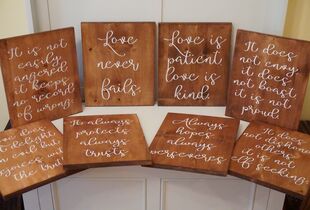 It is not
easily
angered
it keeps
no record
of wrong.
Love
never
fails.
Love is
patient
love is
kind.
It does
not envy,
it does
not boast
it is not
proud.
It does
not delight
in evil but
rejoices with
the truth
It always
protects
always
trusts
Always
hopes,
always
perseveres
It does
not dishonor
others,
it is not
self seeking.